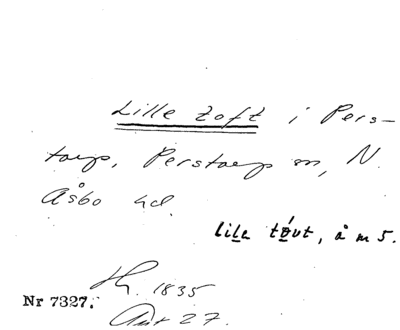 Lille toft i Pers-
torp, Perstorp sn, N.
Åsbo hd.
lilɛ tǿvt, å m 5.
1835
Nr 7327.
Ant 27.